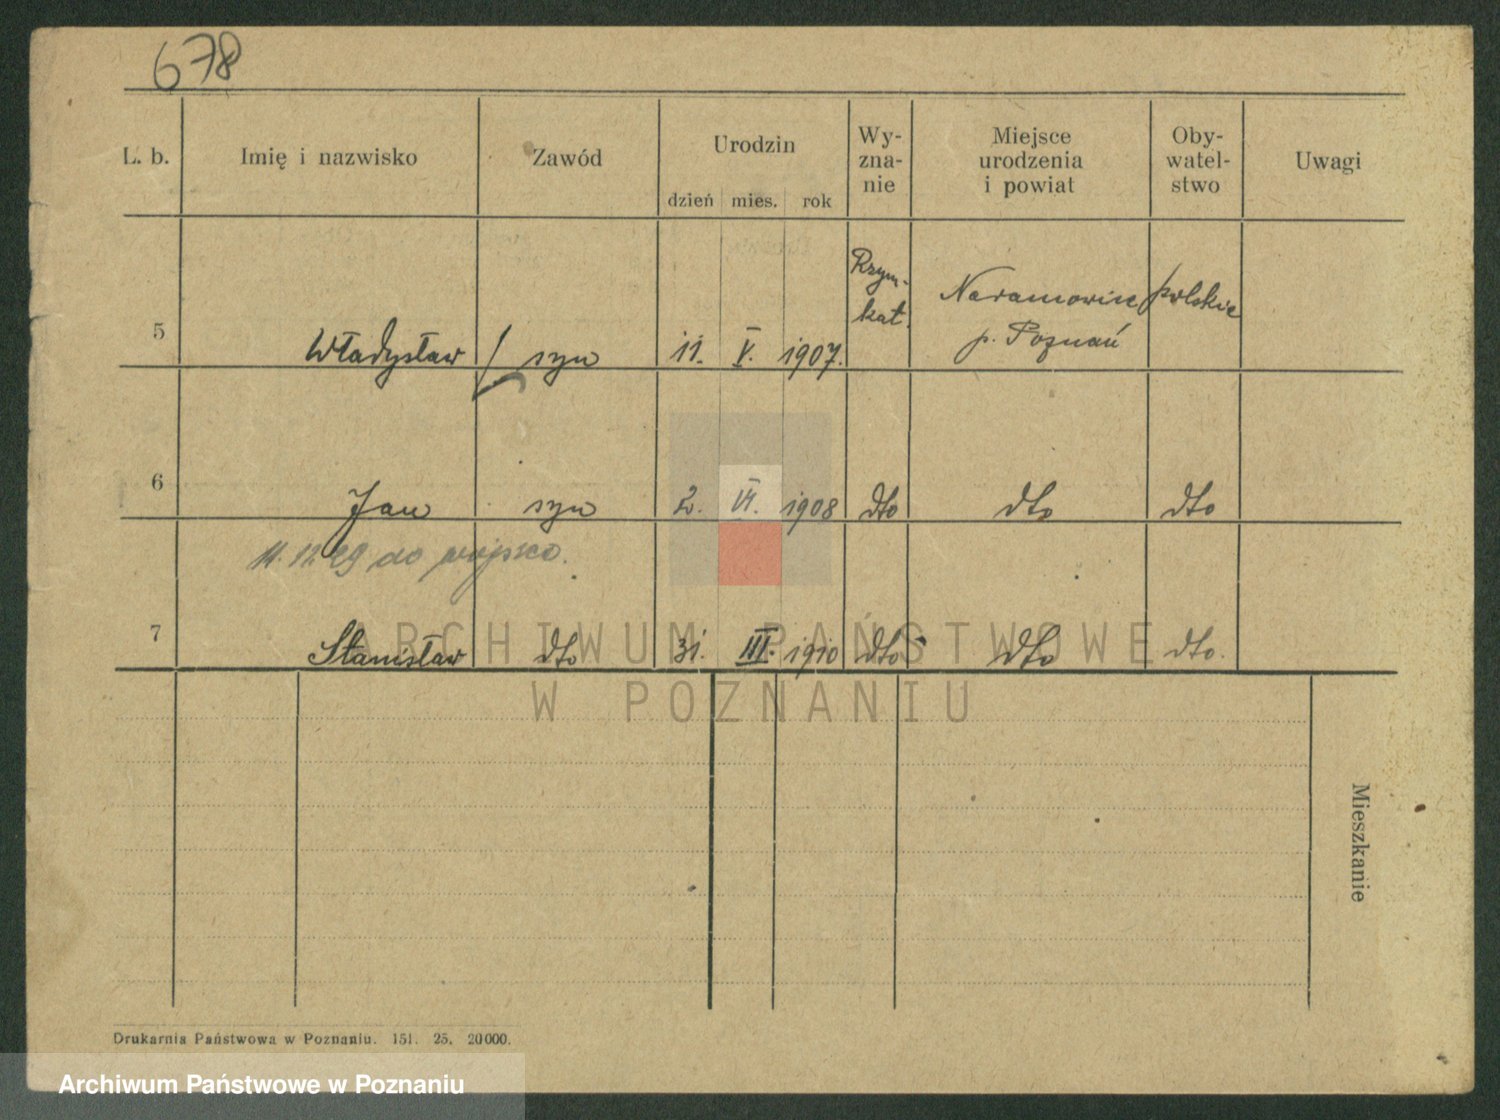 678
L. b. Imię i nazwisko Zawód Urodzin dzień mies. rok Wy-zna-nie Miejsce urodzenia i powiat Oby-watel-stwo Uwagi
5 Władysław syn 11. V. 1907. Rzym.-kat. Naramowice p. Poznań polskie
6 Jan syn 2. VI. 1908 dto dto dto
11.12.29 do wojsco.
7 Stanisław dto 31. III. 1910 dto dto dto.
ARCHIWUM PAŃSTWOWE
W POZNANIU
Mieszkanie
Drukarnia Państwowa w Poznaniu. 151. 25. 20000.
Archiwum Państwowe w Poznaniu